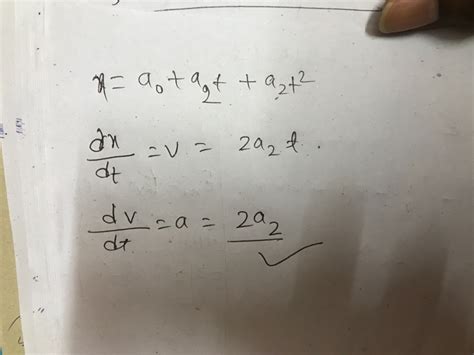 x = a₀ + a₂t + a₂t²
dx/dt = v = 2a₂t.
dv/dt = a = 2a₂ ✓